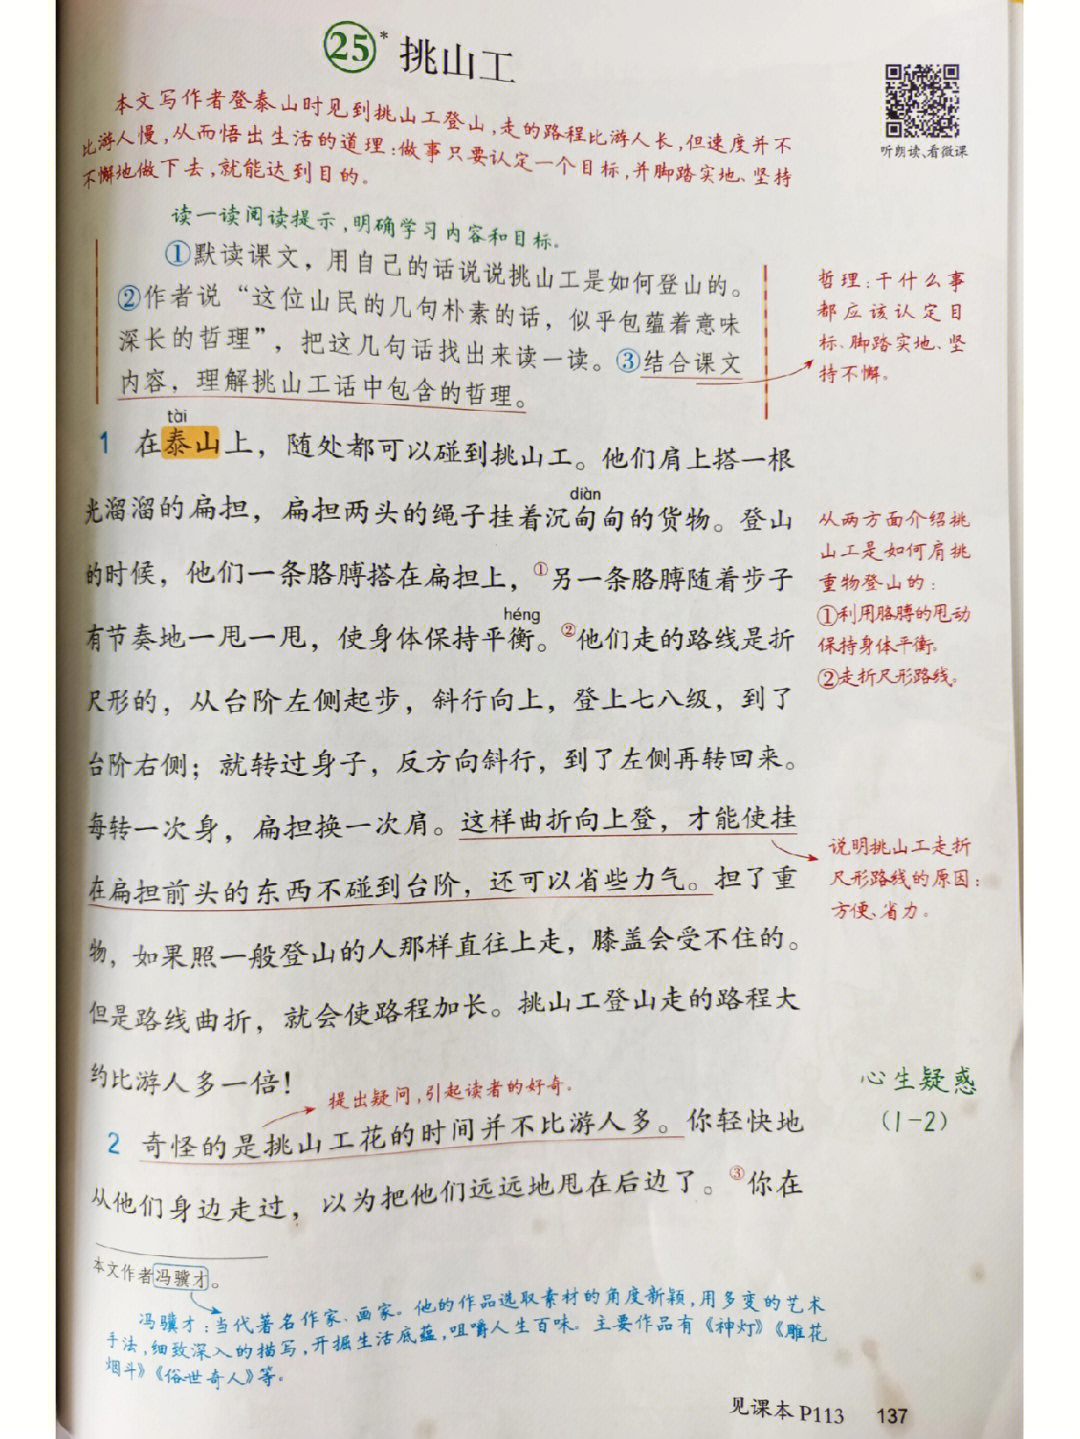 25* 挑山工
听朗读、看微课
本文写作者登泰山时见到挑山工登山,走的路程比游人长,但速度并不
比游人慢,从而悟出生活的道理:做事只要认定一个目标,并脚踏实地、坚持
不懈地做下去,就能达到目的。
读一读阅读提示,明确学习内容和目标。
①默读课文，用自己的话说说挑山工是如何登山的。
②作者说“这位山民的几句朴素的话，似乎包蕴着意味
深长的哲理”，把这几句话找出来读一读。③结合课文
内容，理解挑山工话中包含的哲理。
哲理:干什么事
都应该认定目
标、脚踏实地、坚
持不懈。
tài
1 在泰山上，随处都可以碰到挑山工。他们肩上搭一根
diàn
光溜溜的扁担，扁担两头的绳子挂着沉甸甸的货物。登山
的时候，他们一条胳膊搭在扁担上，①另一条胳膊随着步子
héng
有节奏地一甩一甩，使身体保持平衡。②他们走的路线是折
尺形的，从台阶左侧起步，斜行向上，登上七八级，到了
台阶右侧；就转过身子，反方向斜行，到了左侧再转回来。
每转一次身，扁担换一次肩。这样曲折向上登，才能使挂
在扁担前头的东西不碰到台阶，还可以省些力气。担了重
物，如果照一般登山的人那样直往上走，膝盖会受不住的。
但是路线曲折，就会使路程加长。挑山工登山走的路程大
约比游人多一倍！
从两方面介绍挑
山工是如何肩挑
重物登山的:
①利用胳膊的甩动
保持身体平衡。
②走折尺形路线。
说明挑山工走折
尺形路线的原因:
方便、省力。
提出疑问,引起读者的好奇。
心生疑惑
(1-2)
2 奇怪的是挑山工花的时间并不比游人多。你轻快地
从他们身边走过，以为把他们远远地甩在后边了。③你在
本文作者冯骥才。
冯骥才:当代著名作家、画家。他的作品选取素材的角度新颖,用多变的艺术
手法,细致深入的描写,开掘生活底蕴,咀嚼人生百味。主要作品有《神灯》《雕花
烟斗》《俗世奇人》等。
见课本P113 137